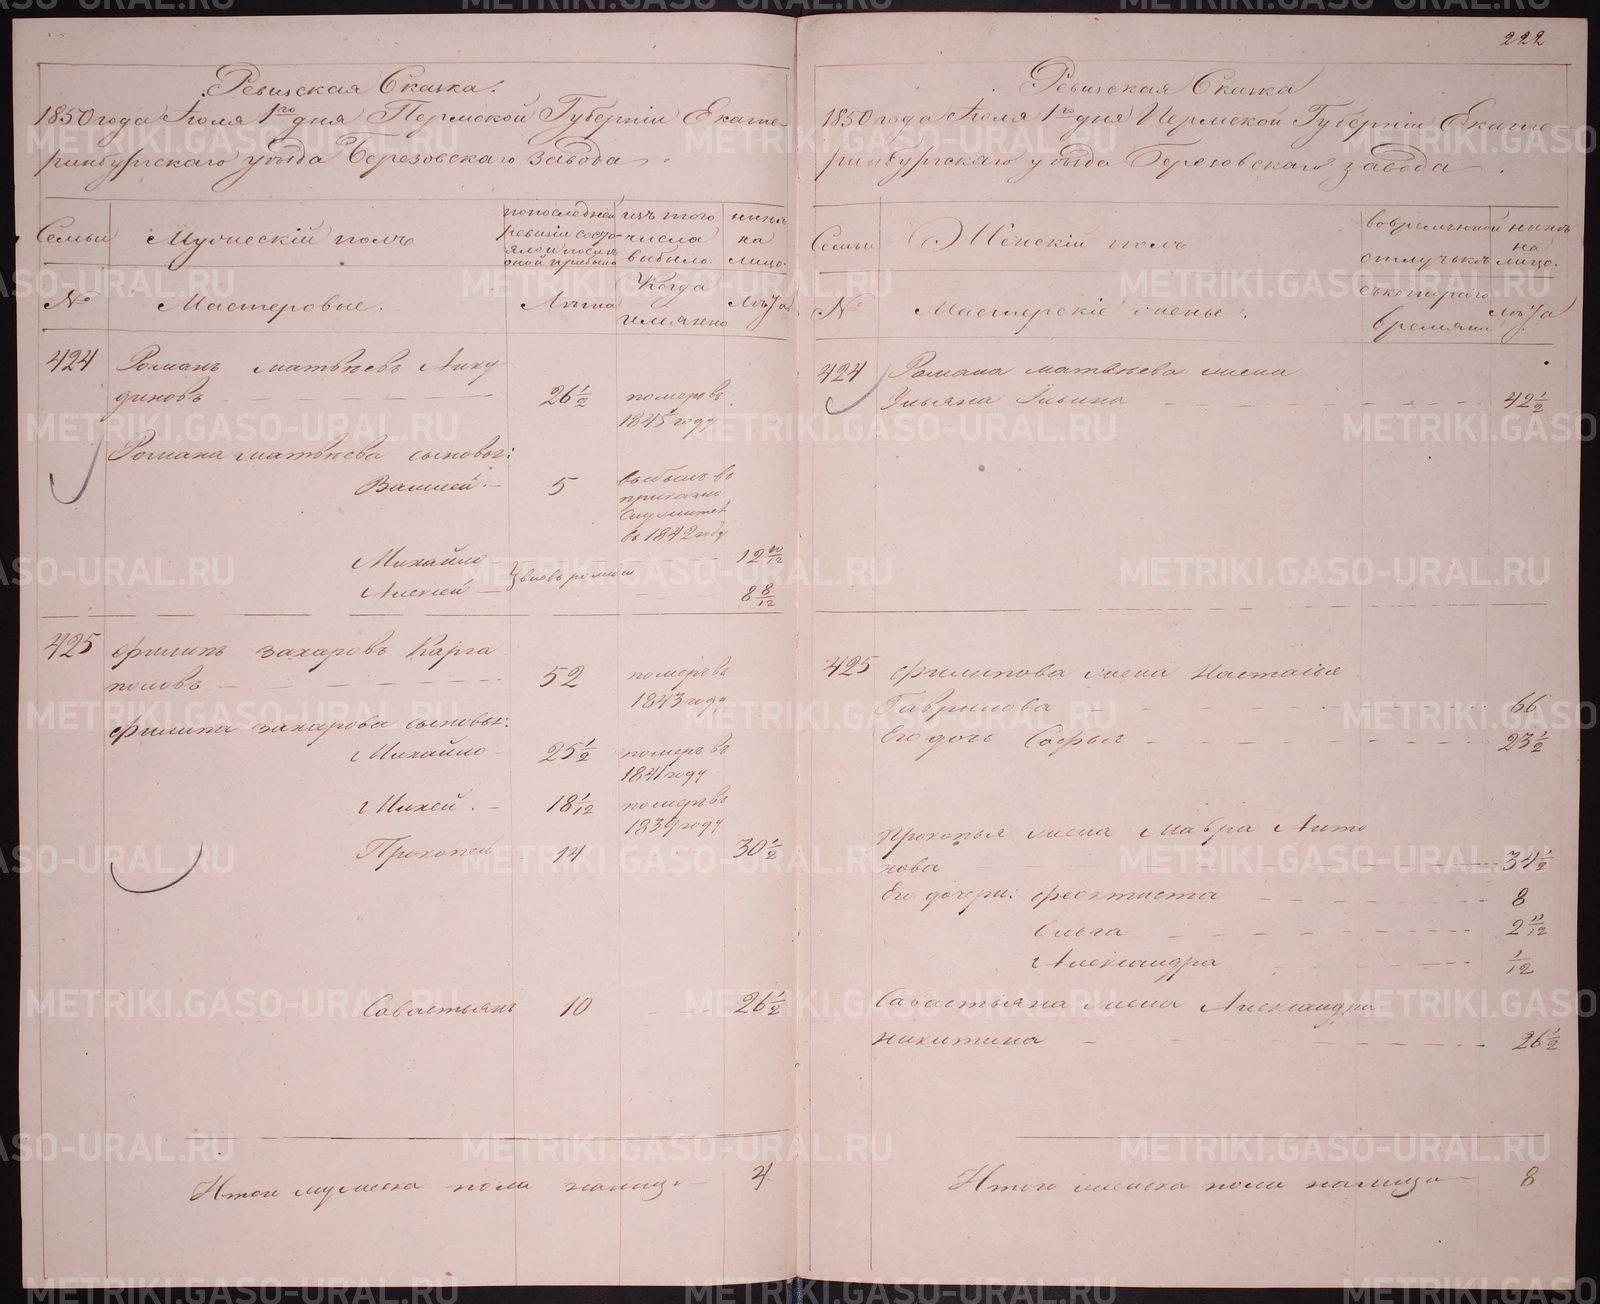 222
Ревизская Сказка.
1850 года Июля 1го дня Пермской Губерніи Екате-
ринбургскаго уѣзда Березовскаго завода
Семьи
Мужескій полъ
по последней
ревизіи состо-
яло и после
оной прибыло
изъ того
числа
выбыло.
нынѣ
на
лицо.
№
Мастеровые.
Лѣта
Когда
имянно
Лѣта
424 Романъ Матвѣевъ Анку
диновъ 26 1/2 померъ въ
1845 году
Романа Матвѣева сыновья:
Василей 5 выбылъ въ
въ 1842 году
Михайло 12 10/12
вновь рожден
Алексей 8 8/12
425 Филипъ Захаровъ Карга
половъ 52 померъ въ
1843 году
Филипа Захарова сыновья:
Михайло 25 1/2 померъ въ
1841 году
Михей 18 1/12 померъ въ
1839 году
Прокопей 14 30 1/2
Савастьянъ 10 26 1/2
Итого мужеска пола налицо 4
Ревизская Сказка
1850 года Июля 1го дня Пермской Губерніи Екате
ринбургскаго уѣзда Березовскаго завода
Семьи
Женскій полъ
во временной
отлучькѣ
нынѣ
на
лицо.
№
Мастерскіе жены.
съ котораго
времяни
Лѣта
424 Романа Матвѣева жена
Ульяна Ильина 42 1/2
425 Филипова жена Настасья
Гаврилова 66
Его дочь Софья 23 1/2
Прокопья жена Мавра Анто
нова 34 1/2
Его дочери: Феоктиста 8
Ольга 2 11/12
Александра 1/12
Савастьяна жена Александра
Никитина 26 1/2
Итого женска пола налицо 8
METRIKI.GASO-URAL.RU